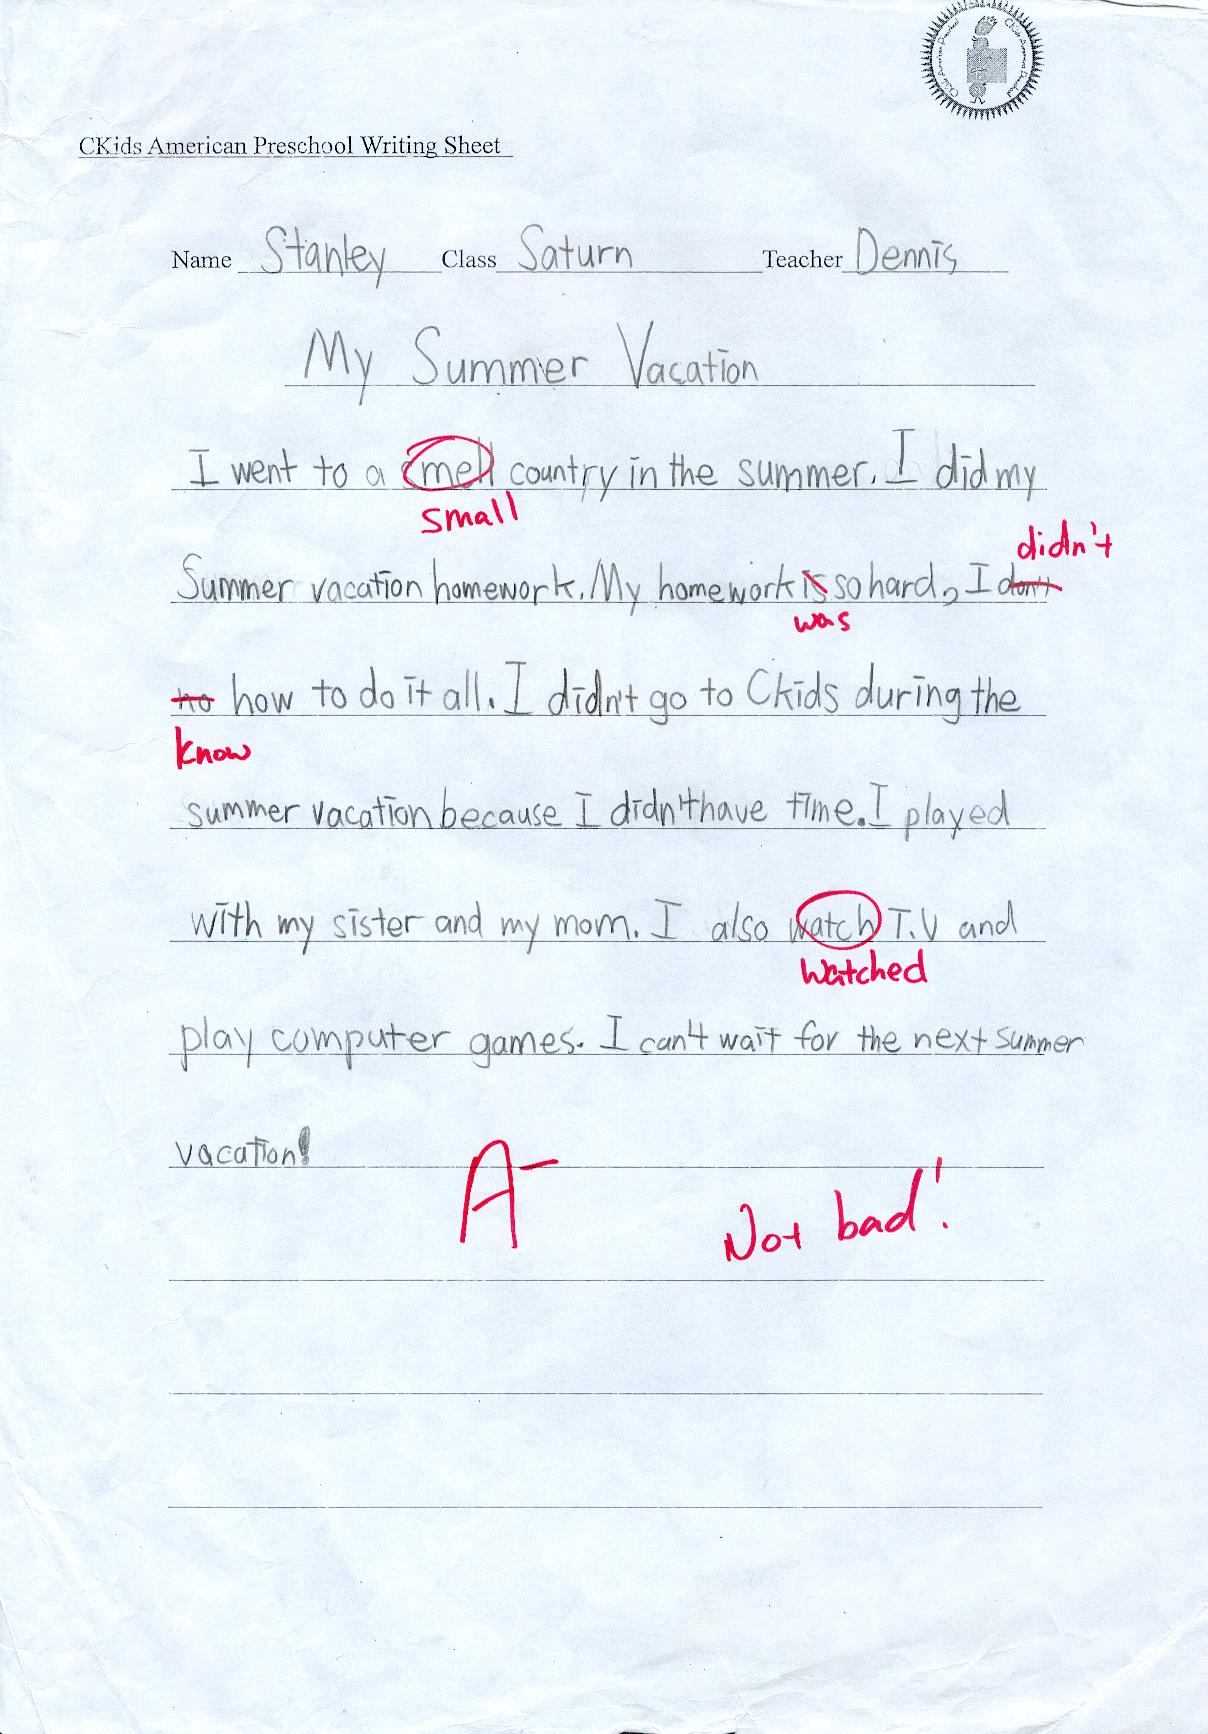 CKids American Preschool Writing Sheet
Name Stanley Class Saturn Teacher Dennis
My Summer Vacation
I went to a smell country in the summer. I did my
small
didn't
Summer vacation homework. My homework is so hard, I don't
was
no how to do it all. I didn't go to Ckids during the
know
summer vacation because I didn't have time. I played
with my sister and my mom. I also watch T.V and
watched
play computer games. I can't wait for the next summer
vacation!
A-
Not bad!